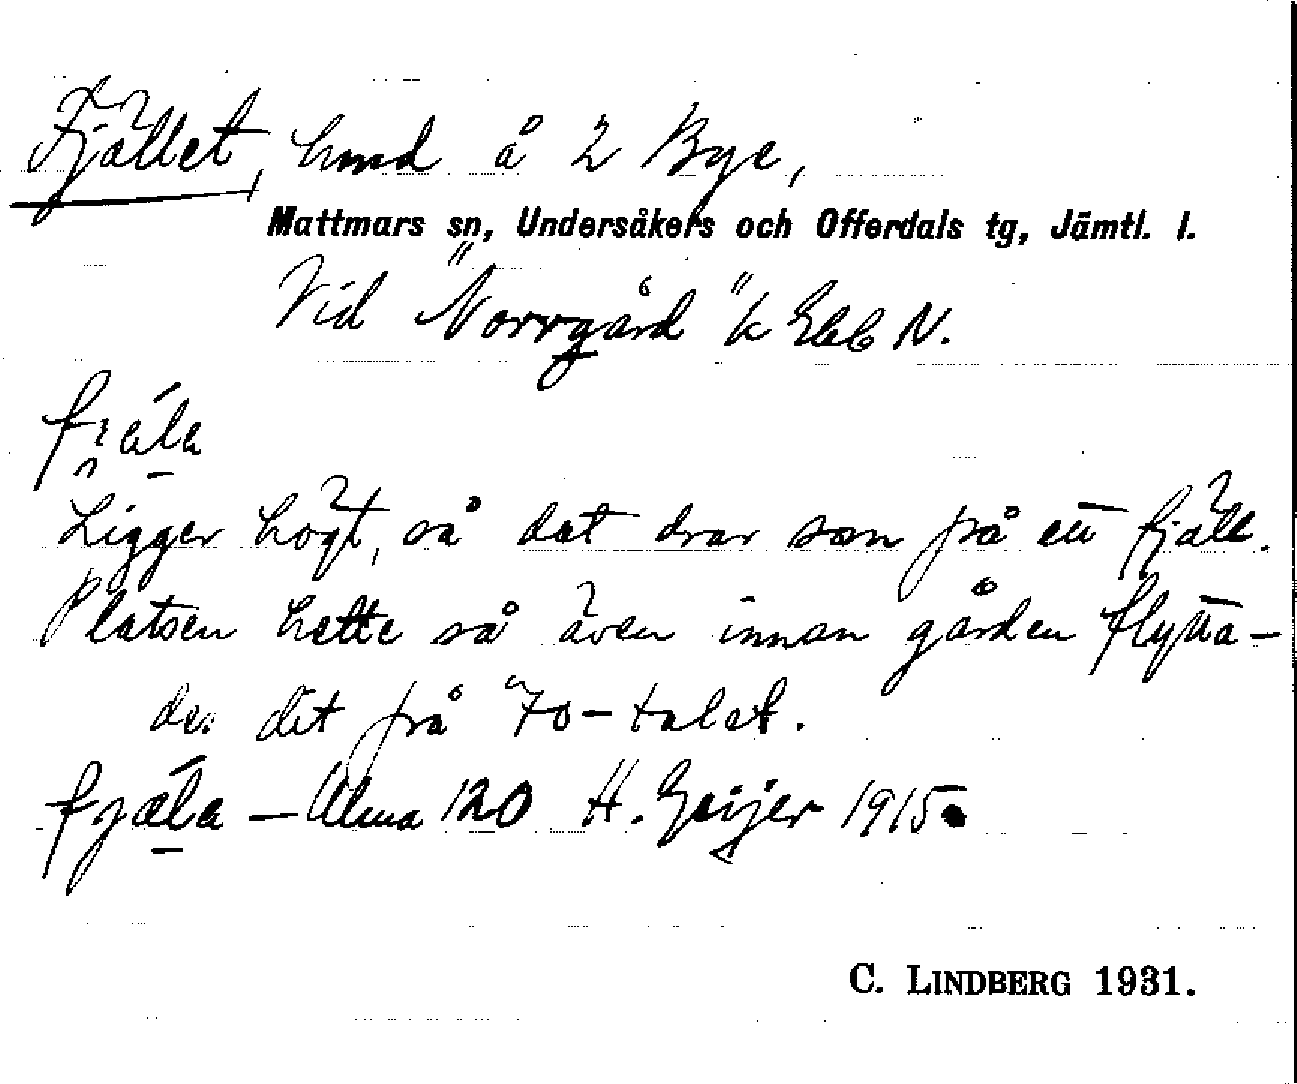 Fjället, hmd å 2 Bye,
Mattmars sn, Undersåkers och Offerdals tg, Jämtl. l.
Vid "Norrgård" k Ebl N.
fjäla
Ligger högt, så det drar som på ett fjäll.
Platsen hette så även innan gården flytta-
des dit på 70-talet.
fjæla — Alma 120 H. Geijer 1915.
C. LINDBERG 1931.